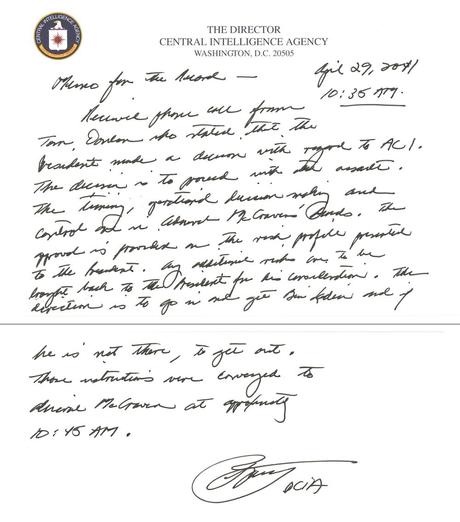 THE DIRECTOR
CENTRAL INTELLIGENCE AGENCY
WASHINGTON, D.C. 20505
Memo for the Record —
April 29, 2011
10:35 AM.
Received phone call from
Tom Donilon who stated that the
President made a decision with regard to AC1.
The decision is to proceed with the assault.
The timing, operational decision making and
control are in Admiral McRaven's hands. The
approval is provided on the risk profile presented
to the President. Any additional risks are to be
brought back to the President for his consideration. The
direction is to go in and get bin Laden and if
he is not there, to get out.
Those instructions were conveyed to
Admiral McRaven at approximately
10:45 AM.
DCIA